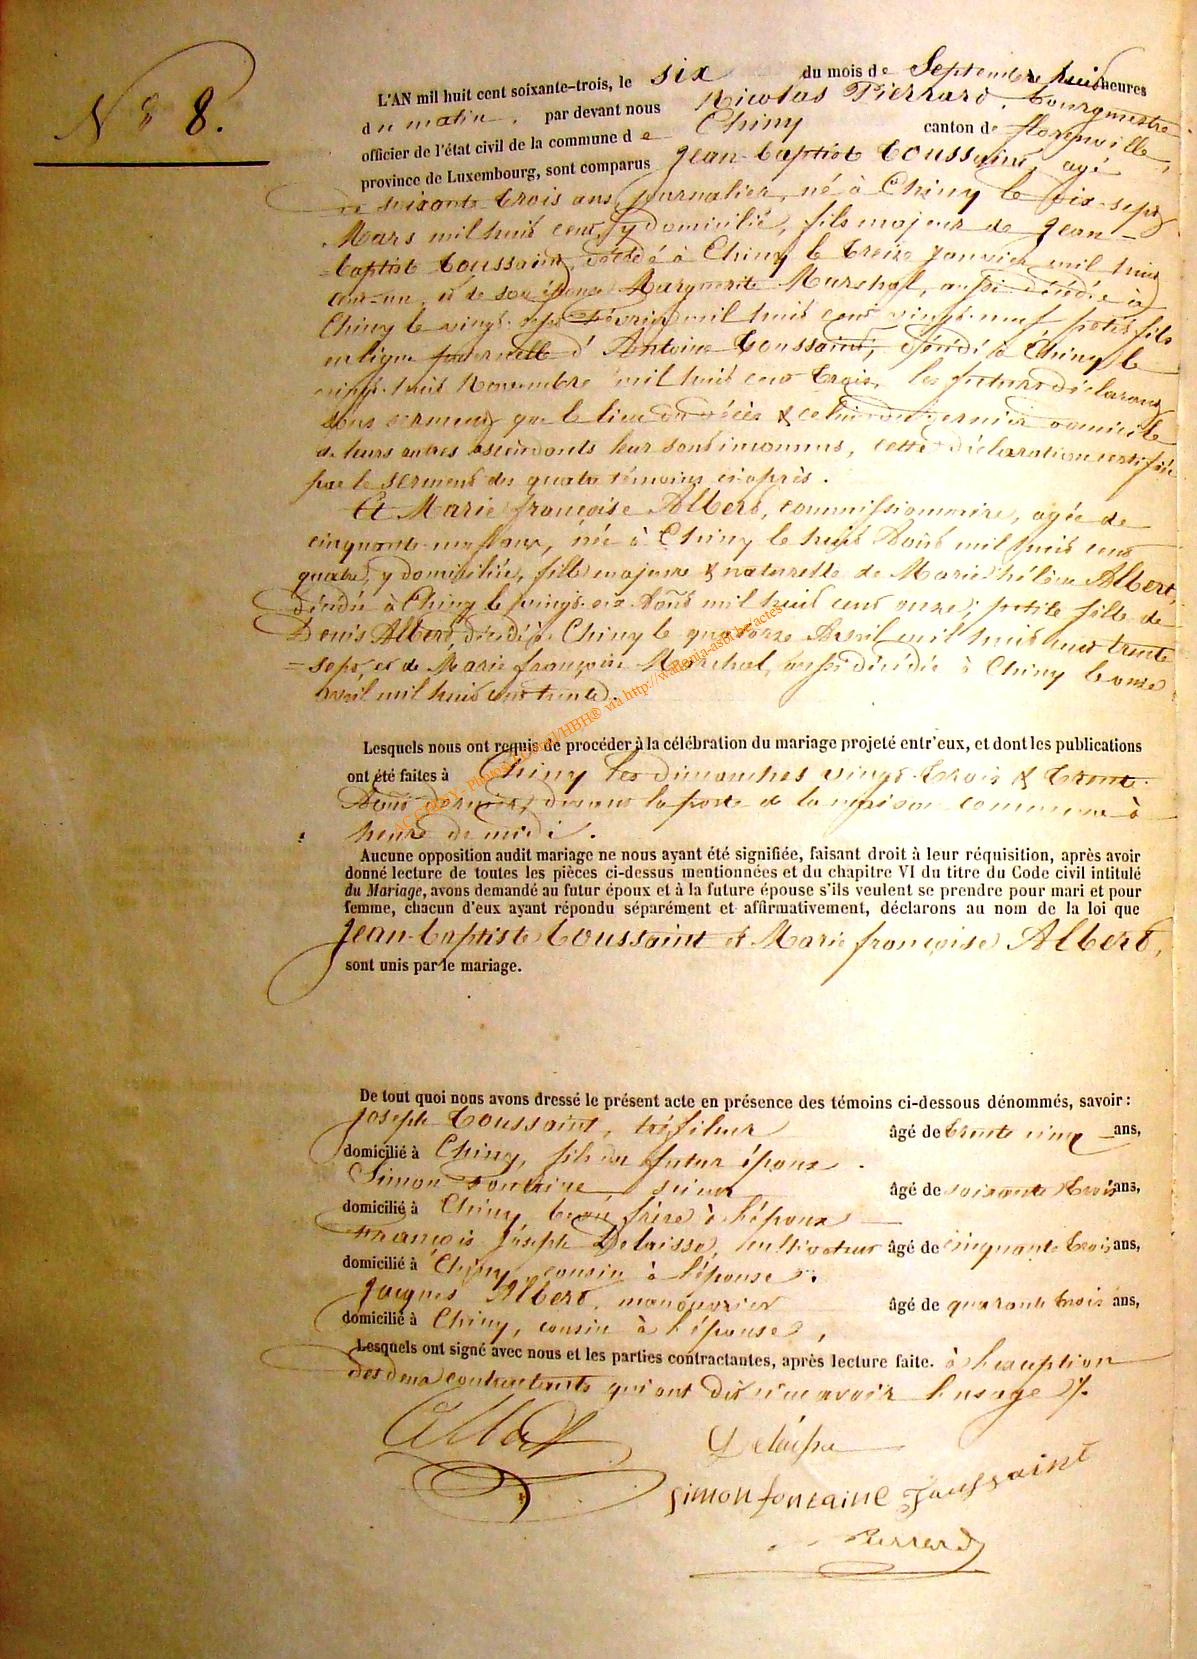 N° 8.
L'AN mil huit cent soixante-trois, le six du mois de Septembre huit heures
du matin, par devant nous Nicolas Pierrard, bourgmestre
officier de l'état civil de la commune de Chiny canton de florenville,
province de Luxembourg, sont comparus Jean-baptiste toussaint, agé
de soixante trois ans, journalier, né à Chiny le dix-sept
Mars mil huit cent, y domicilié, fils majeur de Jean-
=baptiste toussaint, décédé à Chiny le treize janvier mil huit
cent-un, et de son épouse Marguerite Marchal, aussi décédée à
Chiny le vingt-sept Février mil huit cent vingt-neuf petit fils
en ligne paternelle d'Antoine toussaint, décédé à Chiny le
vingt-huit Novembre mil huit cent trois, les futurs déclarant
sous serment que le lieu du décès & celui du dernier domicile
de leurs autres ascendants leur sont inconnus, cette déclaration certifiée
par le serment des quatre témoins ci-après.
Et Marie françoise Albert, commissionnaire, agée de
cinquante-neuf ans, née à Chiny le huit Août mil huit cent
quatre, y domiciliée, fille majeure & naturelle de Marie hélène Albert,
décédée à Chiny le vingt-six Août mil huit cent onze; petite fille de
Denis Albert, décédé à Chiny le quatorze Avril mil huit cent trente
=sept, et de Marie françoise Marchal, aussi décédée à Chiny le onze
avril mil huit cent trente.
Lesquels nous ont requis de procéder à la célébration du mariage projeté entr'eux, et dont les publications
ont été faites à Chiny les dimanches vingt-trois & trente
Août dernier, devant la porte de la maison commune à
heure de midi.
Aucune opposition audit mariage ne nous ayant été signifiée, faisant droit à leur réquisition, après avoir
donné lecture de toutes les pièces ci-dessus mentionnées et du chapitre VI du titre du Code civil intitulé
du Mariage, avons demandé au futur époux et à la future épouse s'ils veulent se prendre pour mari et pour
femme, chacun d'eux ayant répondu séparément et affirmativement, déclarons au nom de la loi que
Jean-baptiste toussaint et Marie françoise Albert,
sont unis par le mariage.
De tout quoi nous avons dressé le présent acte en présence des témoins ci-dessous dénommés, savoir:
Joseph toussaint, tréfileur âgé de trente cinq ans,
domicilié à Chiny, fils du futur époux.
Simon fontaine, scieur âgé de soixante trois ans,
domicilié à Chiny, beau frère à l'époux
François Joseph Delaisse, cultivateur âgé de cinquante trois ans,
domicilié à Chiny, cousin à l'épouse.
Jacques Albert, manouvrier âgé de quarante trois ans,
domicilié à Chiny, cousin à l'épouse,
Lesquels ont signé avec nous et les parties contractantes, après lecture faite. à l'exception
des deux contractants qui ont dit n'en avoir l'usage.
Albert
Delaisse
Simon fontaine Toussaint
Pierrard
via http://wallonia-asbl.be/actes